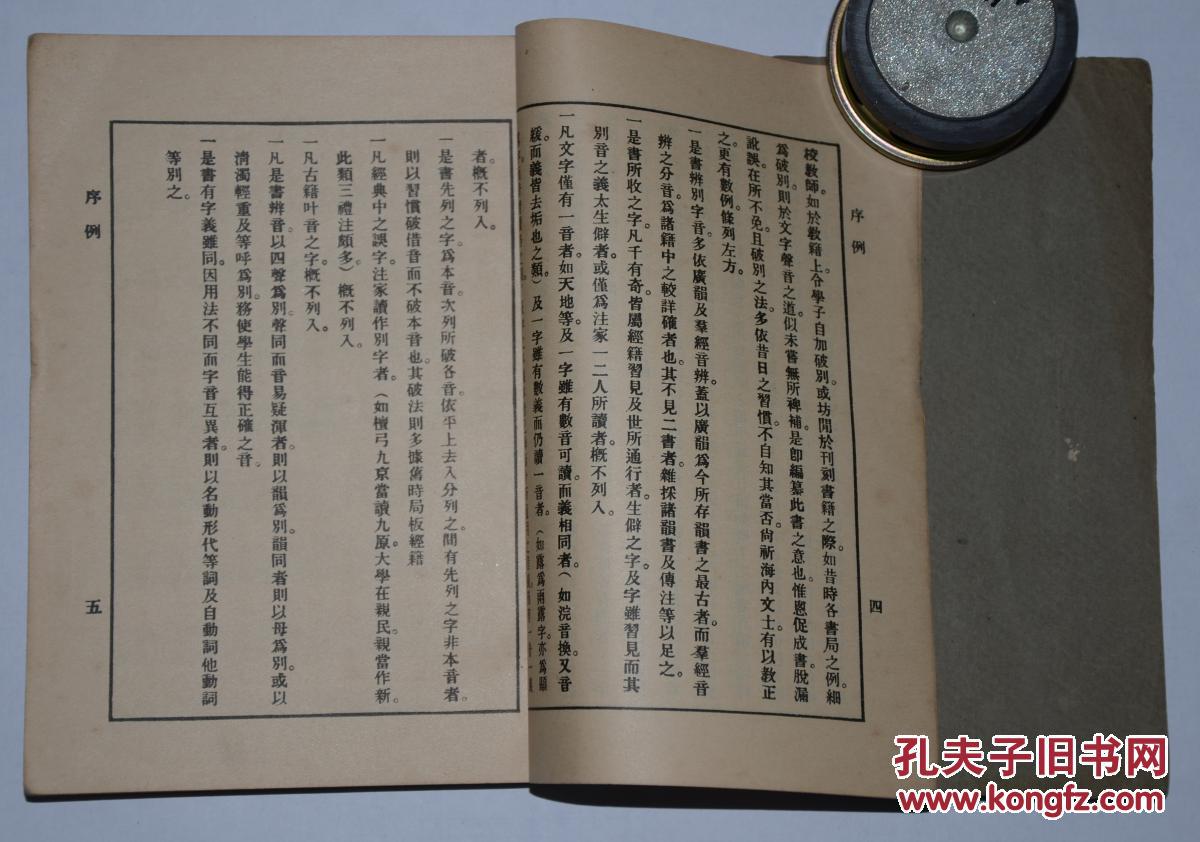 序例
四
校教師。如於教籍上令學子自加破別。或坊間於刊刻書籍之際。如昔時各書局之例。細
爲破別。則於文字聲音之道。似未嘗無所裨補。是卽編纂此書之意也。惟悤促成書。脫漏
訛誤。在所不免。且破別之法。多依昔日之習慣。不自知其當否。尙祈海內文士。有以敎正
之。更有數例。條列左方。
一是書辨別字音。多依廣韻及羣經音辨。蓋以廣韻爲今所存韻書之最古者。而羣經音
辨之分音。爲諸籍中之較詳確者也。其不見二書者。雜採諸韻書及傳注等以足之。
一是書所收之字。凡千有奇。皆屬經籍習見及世所通行者。生僻之字。及字雖習見而其
別音之義太生僻者。或僅爲注家一二人所讀者。槪不列入。
一凡文字僅有一音者。如天地等。及一字雖有數音可讀。而義相同者。(如浣音換。又音
緩。而義皆去垢也之類。)及一字雖有數義而仍讀一音者。(如露爲雨露字。亦爲顯
者。槪不列入。
一是書先列之字。爲本音。次列所破各音。依平上去入分列之。間有先列之字非本音者。
則以習慣破借音而不破本音也。其破法則多據舊時局板經籍
一凡經典中之誤字。注家讀作別字者。(如檀弓九京當讀九原。大學在親民。親當作新。
此類三禮注頗多)槪不列入。
一凡古籍叶音之字。槪不列入。
一凡是書辨音。以四聲爲別。聲同而音易疑渾者。則以韻爲別。韻同者則以母爲別。或以
淸濁輕重及等呼爲別。務使學生能得正確之音。
一是書有字義雖同。因用法不同而字音互異者。則以名動形代等詞及自動詞他動詞
等別之。
序例
五
孔夫子旧书网
www.kongfz.com